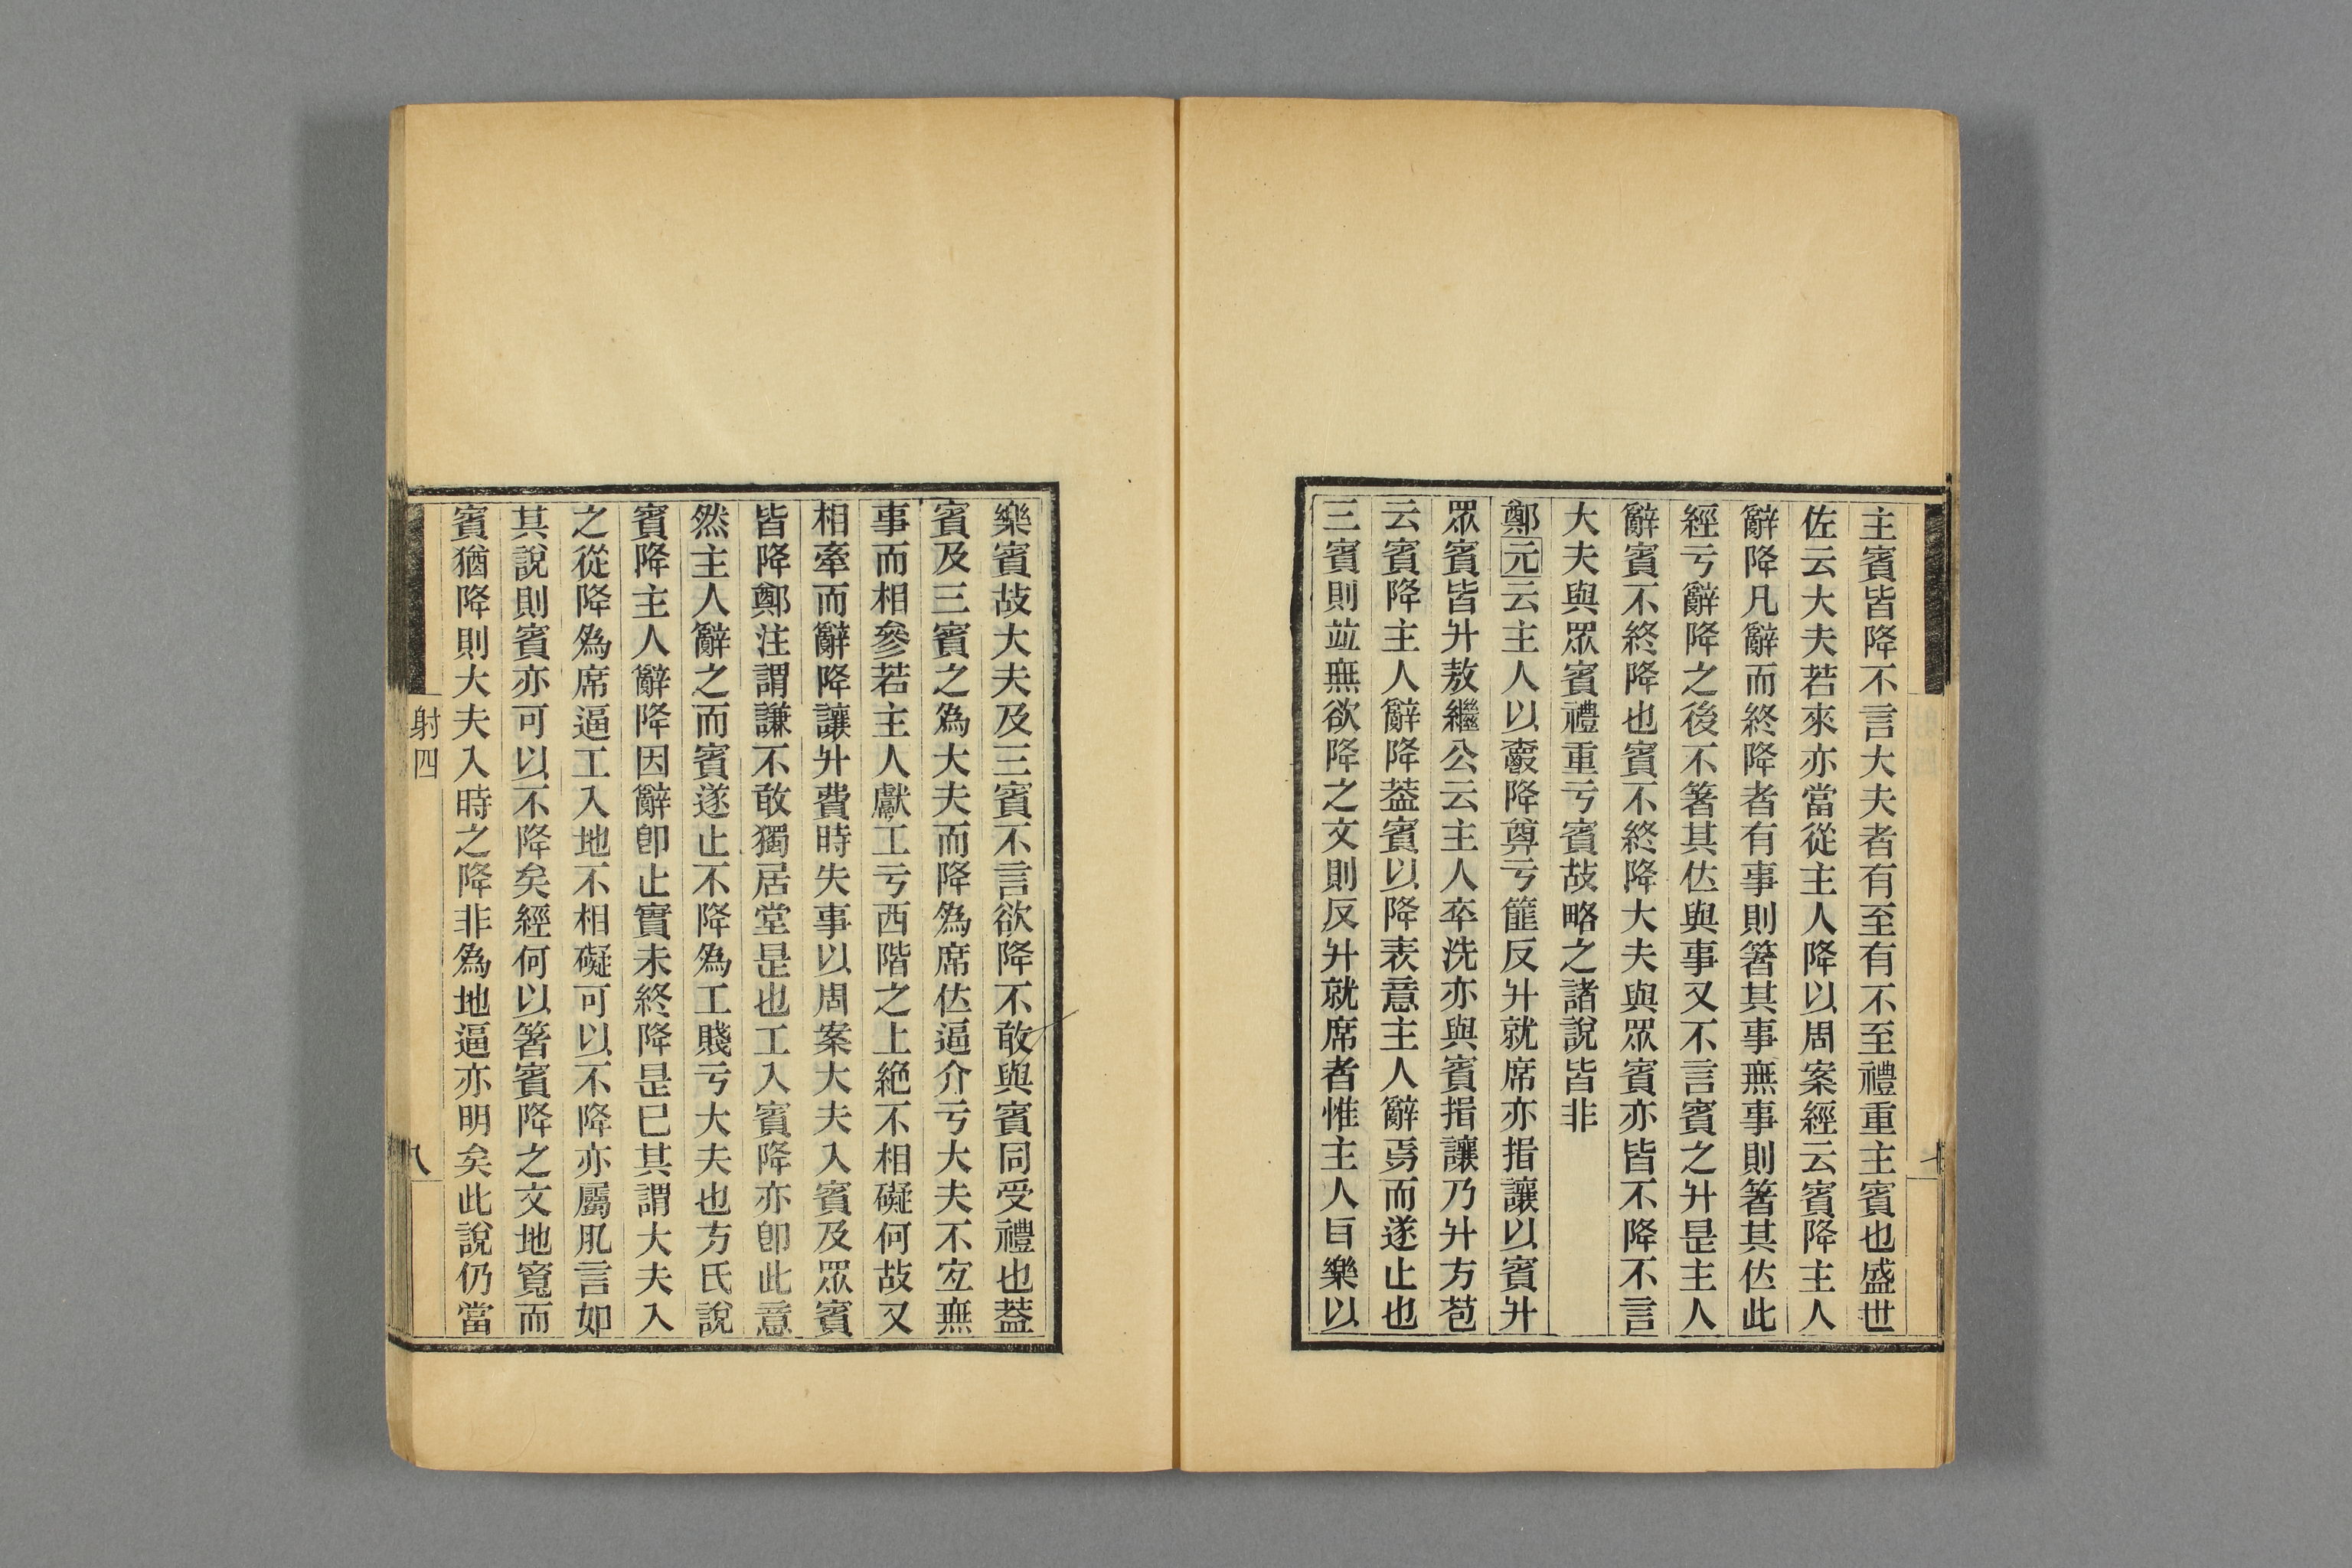 主賓皆降不言大夫者有至有不至禮重主賓也盛世
佐云大夫若來亦當從主人降以周案經云賓降主人
辭降凡辭而終降者有事則箸其事無事則箸其佐此
經亏辭降之後不箸其佐與事又不言賓之升是主人
辭賓不終降也賓不終降大夫與眾賓亦皆不降不言
大夫與眾賓禮重亏賓故略之諸說皆非
鄭元云主人以降奠亏篚反升就席亦揖讓以賓升
眾賓皆升敖繼公云主人卒洗亦與賓揖讓乃升方苞
云賓降主人辭降葢賓以降表意主人辭焉而遂止也
三賓則竝無欲降之文則反升就席者惟主人㠯樂以
樂賓故大夫及三賓不言欲降不敢與賓同受禮也葢
賓及三賓之為大夫而降為席佐逼介亏大夫不宜無
事而相參若主人獻工亏西階之上絶不相礙何故又
相牽而辭降讓升費時失事以周案大夫入賓及眾賓
皆降鄭注謂謙不敢獨居堂是也工入賓降亦卽此意
然主人辭之而賓遂止不降為工賤亏大夫也方氏說
賓降主人辭降因辭卽止實未終降是巳其謂大夫入
之從降為席逼工入地不相礙可以不降亦屬肊言如
其說則賓亦可以不降矣經何以箸賓降之文地寬而
賓猶降則大夫入時之降非為地逼亦明矣此說仍當
射四
八